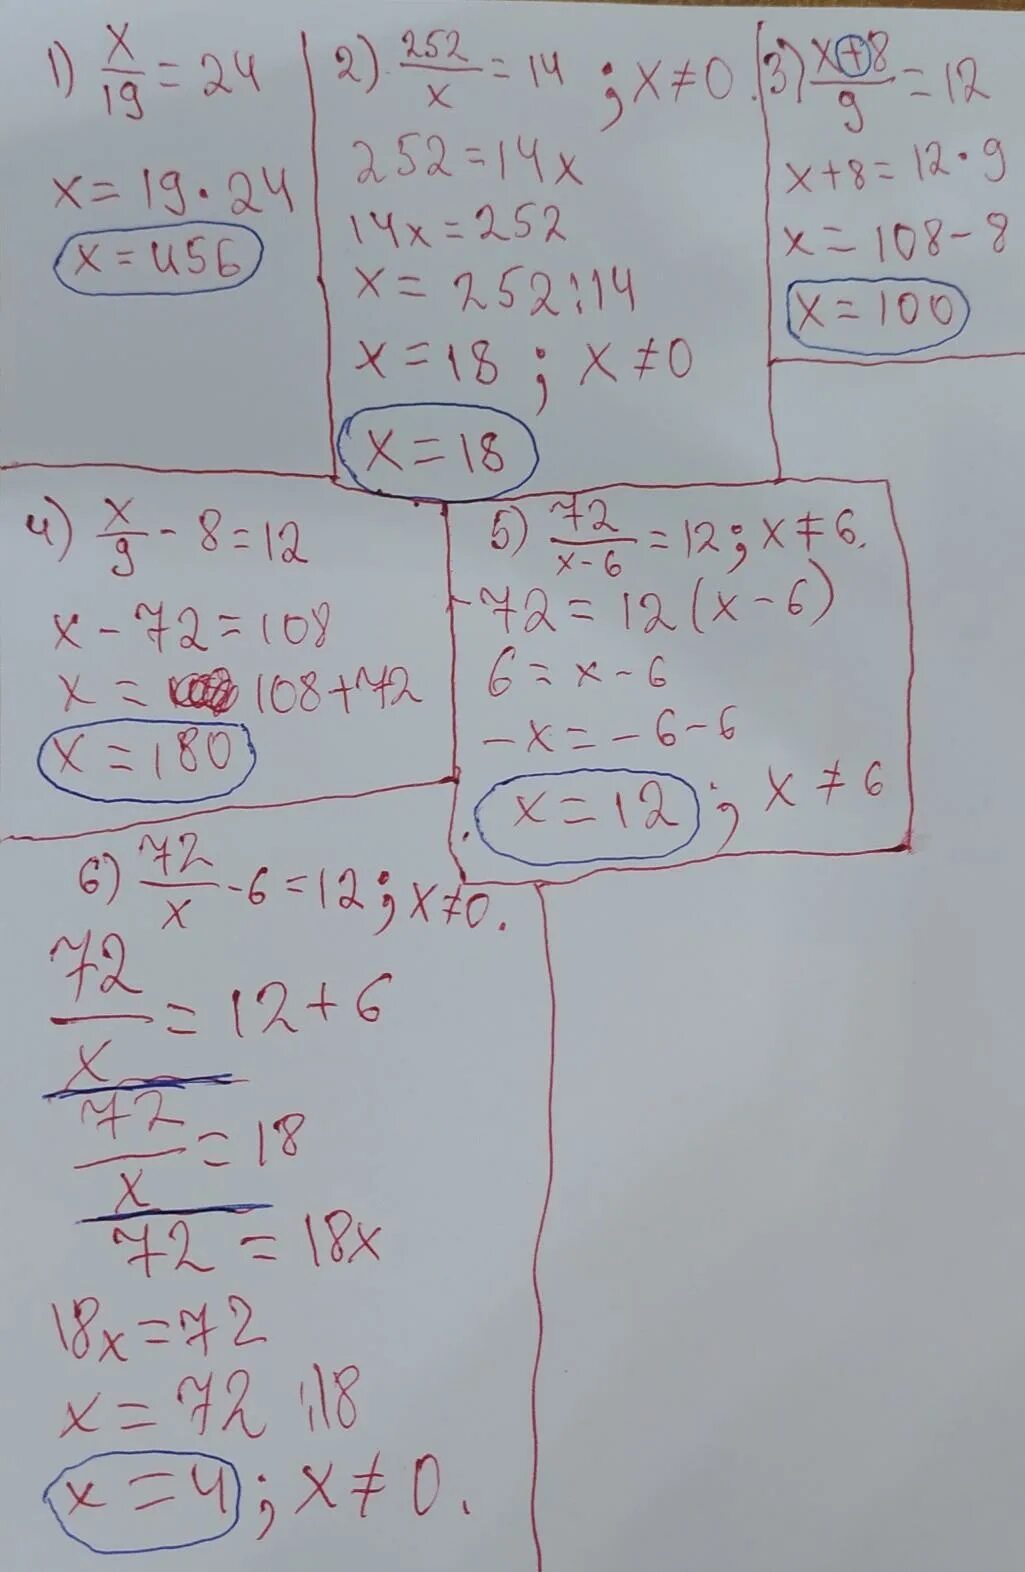 1) x/19 = 24
x = 19 · 24
x = 456
2) 252/x = 14 ; x ≠ 0.
252 = 14x
14x = 252
x = 252 : 14
x = 18 ; x ≠ 0
x = 18
3) x+8/9 = 12
x + 8 = 12 · 9
x = 108 - 8
x = 100
4) x/9 - 8 = 12
x - 72 = 108
x = 108 + 72
x = 180
5) 72/x-6 = 12 ; x ≠ 6.
72 = 12 (x - 6)
6 = x - 6
-x = -6 - 6
x = 12 ; x ≠ 6
6) 72/x - 6 = 12 ; x ≠ 0.
72/x = 12 + 6
72/x = 18
72 = 18x
18x = 72
x = 72 : 18
x = 4 ; x ≠ 0.